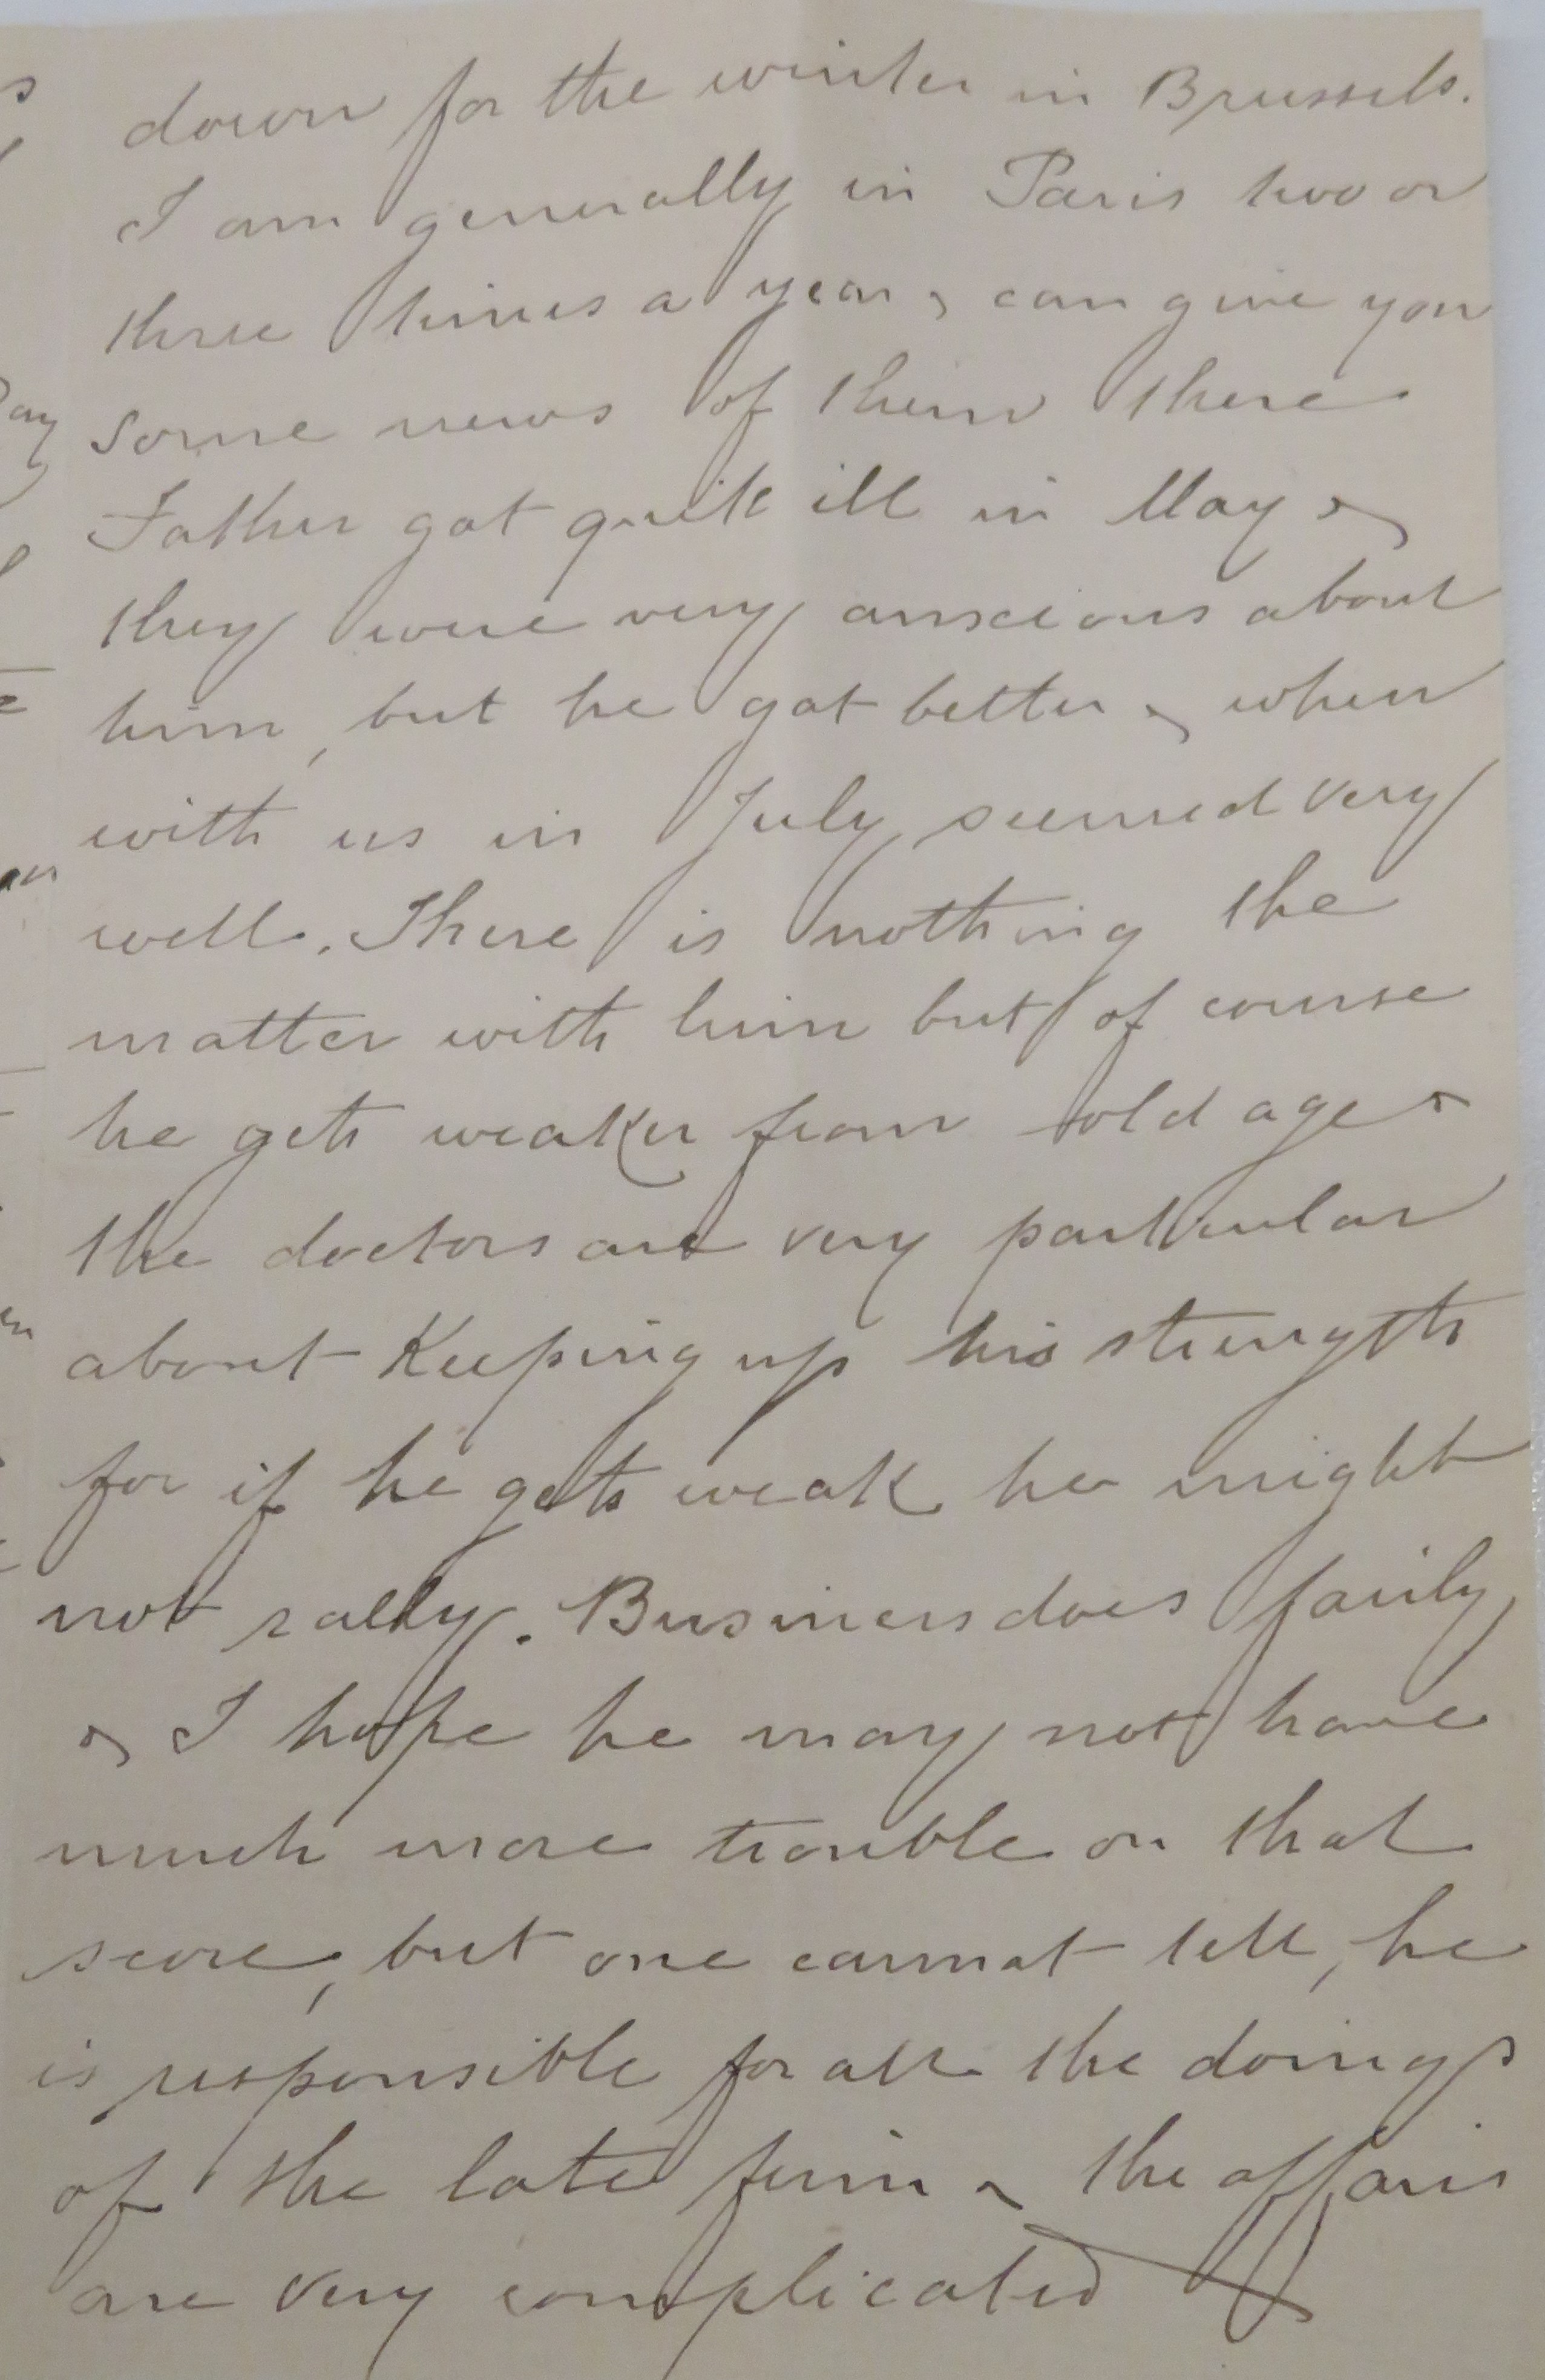 down for the winter in Brussels.
I am generally in Paris two or
three times a year & can give you
some news of them there
Father got quite ill in May &
they were very anxious about
him, but he got better & when
with us in July seemed very
well. There is nothing the
matter with him but of course
he gets weaker from old age &
the doctors are very particular
about Keeping up his strength
for if he gets weak he might
not rally. Business does fairly
& I hope he may not have
much more trouble on that
score, but one cannot tell, he
is responsible for all the doings
of the late firm & the affairs
are very complicated